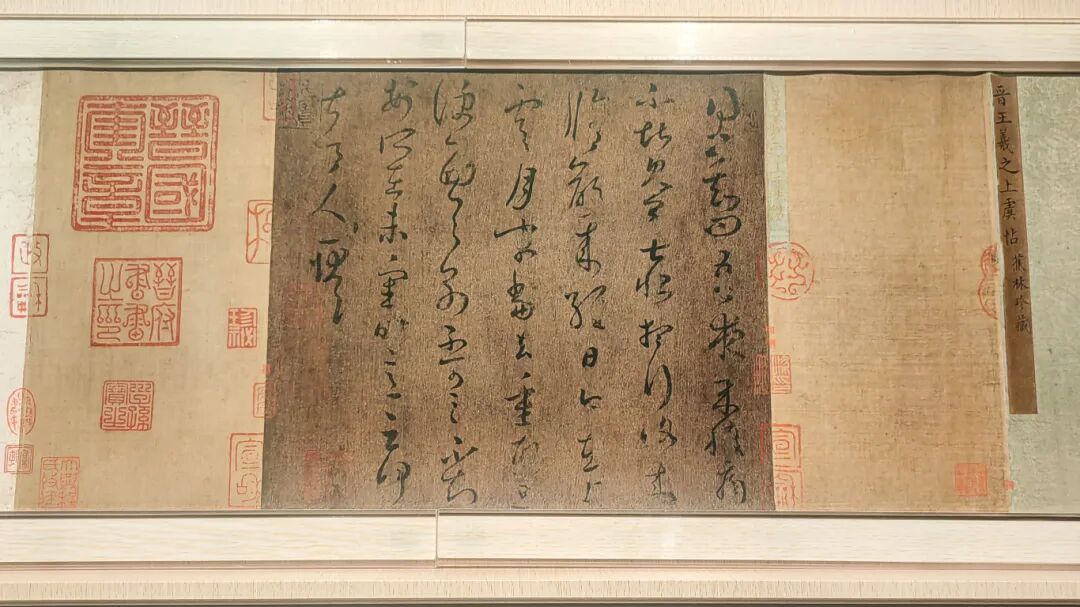 晋王羲之上虞帖 蕉林珍藏
得書知問吾夜來腹痛
不堪見卿甚恨想行復來
脩齡來經日今在上
虞月末當去重熙旦
便西與別不可言不知
安所在未審時意云何
甚令人耿耿
晉國奎章
晉府書畫之印